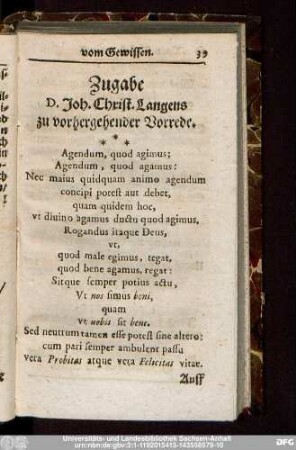 vom Gewissen. 39
Zugabe
D. Joh. Christ. Langens
zu vorhergehender Vorrede.
* * *
Agendum, quod agimus;
Agendum, quod agamus:
Nec maius quidquam animo agendum
concipi potest aut debet,
quam quidem hoc,
vt diuino agamus ductu quod agimus.
Rogandus itaque Deus,
vt,
quod male egimus, tegat,
quod bene agamus, regat:
Sitque semper potius actu,
Vt nos simus boni,
quam
vt nobis sit bene.
Sed neutrum tamen esse potest sine altero:
cum pari semper ambulent passu
vera Probitas atque vera Felicitas vitae.
Auff
Universitäts- und Landesbibliothek Sachsen-Anhalt
urn:nbn:de:gbv:3:1-1192015415-143556979-10
DFG